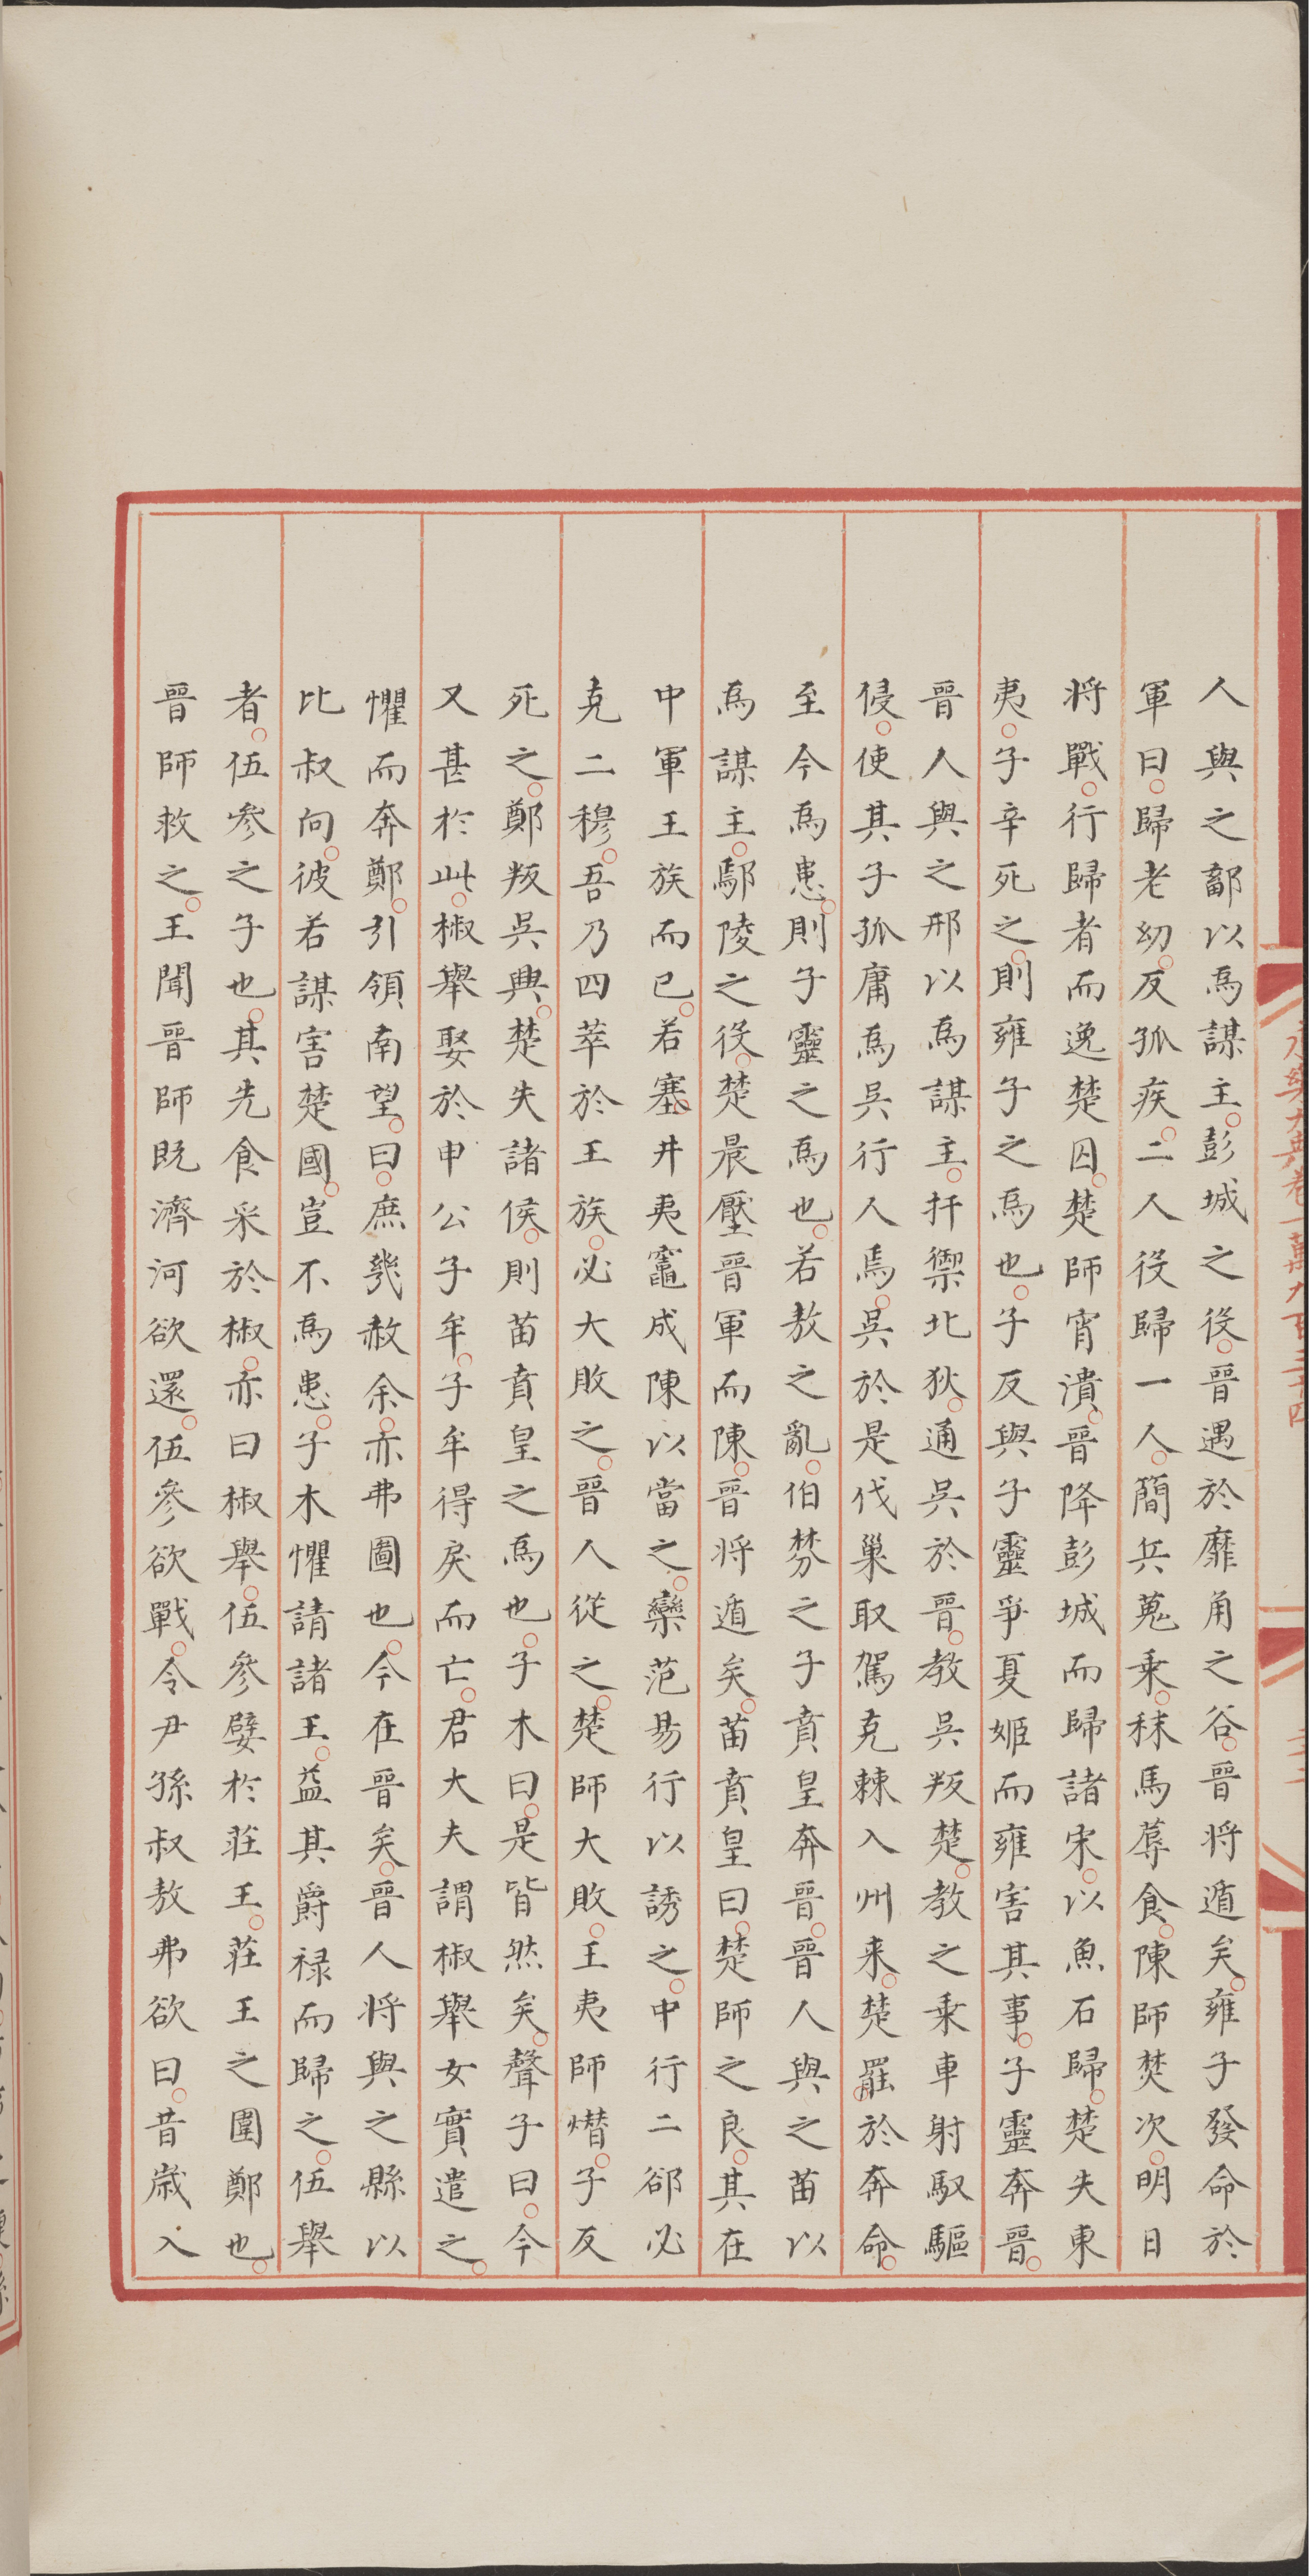 人與之鄐以爲謀主彭城之役晉遇於靡角之谷晉將遁矣雍子發命於
軍曰歸老幼反孤疾二人役歸一人簡兵蒐乘秣馬蓐食陳師焚次明日
將戰行歸者而逸楚囚楚師宵潰晉降彭城而歸諸宋以魚石歸楚失東
夷子辛死之則雍子之爲也子反與子靈爭夏姬而雍害其事子靈奔晉
晉人與之邢以爲謀主扞禦北狄通吳於晉教吳叛楚教之乘車射馭驅
侵使其子孤庸爲吳行人焉吳於是伐巢取駕克棘入州来楚罷於奔命
至今爲患則子靈之爲也若敖之亂伯棼之子賁皇奔晉晉人與之苗以
爲謀主鄢陵之役楚晨壓晉軍而陳晉将遁矣苗賁皇曰楚師之良其在
中軍王族而已若塞井夷竈成陳以當之欒范昜行以誘之中行二郤必
克二穆吾乃四萃於王族必大敗之晉人從之楚師大敗王夷師熸子反
死之鄭叛吳興楚失諸侯則苗賁皇之爲也子木曰是皆然矣聲子曰今
又甚於此椒舉娶於申公子牟子牟得戾而亡君大夫謂椒舉女實遣之
懼而奔鄭引領南望曰庶幾赦余亦弗圖也今在晉矣晉人將與之縣以
比叔向彼若謀害楚國豈不爲患子木懼請諸王益其爵禄而歸之伍舉
者伍參之子也其先食采於椒亦曰椒舉伍參嬖於莊王莊王之圍鄭也
晉師救之王聞晉師既濟河欲還伍參欲戰令尹孫叔敖弗欲曰昔歲入
永樂大典卷一萬九百三十四